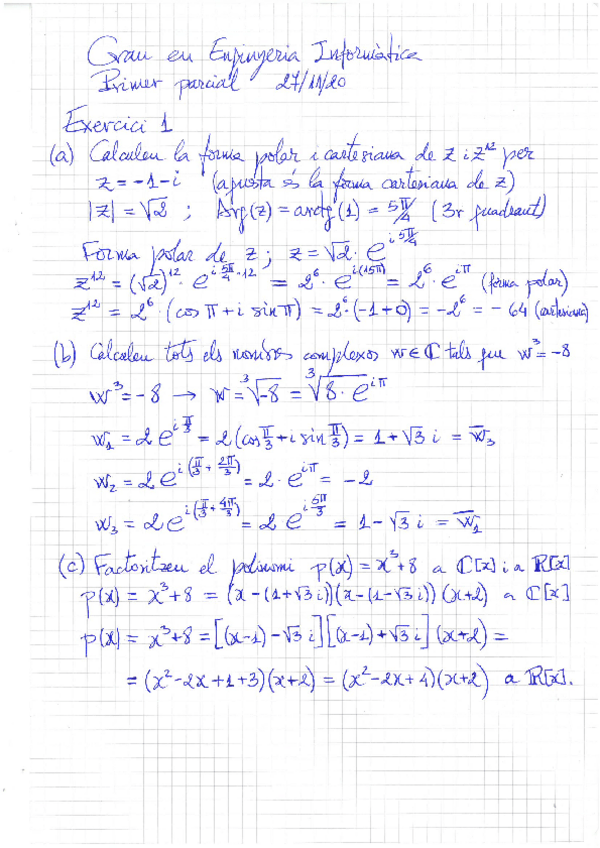 Grau en Enginyeria Informàtica
Primer parcial 27/11/20
Exercici 1
(a) Calculeu la forma polar i cartesiana de z i z^12 per
z = -1-i (aquesta és la forma cartesiana de z)
|z| = √2 ; Arg(z) = arctg(1) = 5π/4 (3r quadrant)
Forma polar de z ; z = √2 · e^(i 5π/4)
z^12 = (√2)^12 · e^(i 5π/4 · 12) = 2^6 · e^(i(15π)) = 2^6 · e^(iπ) (forma polar)
z^12 = 2^6 · (cos π + i sin π) = 2^6 · (-1+0) = -2^6 = -64 (cartesiana)
(b) Calculeu tots els nombres complexos w ∈ ℂ tals que w^3 = -8
w^3 = -8 → w = ∛-8 = ∛(8 · e^(iπ))
w₁ = 2 e^(i π/3) = 2 (cos π/3 + i sin π/3) = 1 + √3 i = w̅₃
w₂ = 2 e^(i (π/3 + 2π/3)) = 2 · e^(iπ) = -2
w₃ = 2 e^(i (π/3 + 4π/3)) = 2 e^(i 5π/3) = 1 - √3 i = w̅₁
(c) Factoritzeu el polinomi p(x) = x^3 + 8 a ℂ[x] i a ℝ[x]
p(x) = x^3 + 8 = (x - (1+√3 i))(x - (1-√3 i))(x+2) a ℂ[x]
p(x) = x^3 + 8 = [(x-1) - √3 i][(x-1) + √3 i](x+2) =
= (x^2 - 2x + 1 + 3)(x+2) = (x^2 - 2x + 4)(x+2) a ℝ[x].